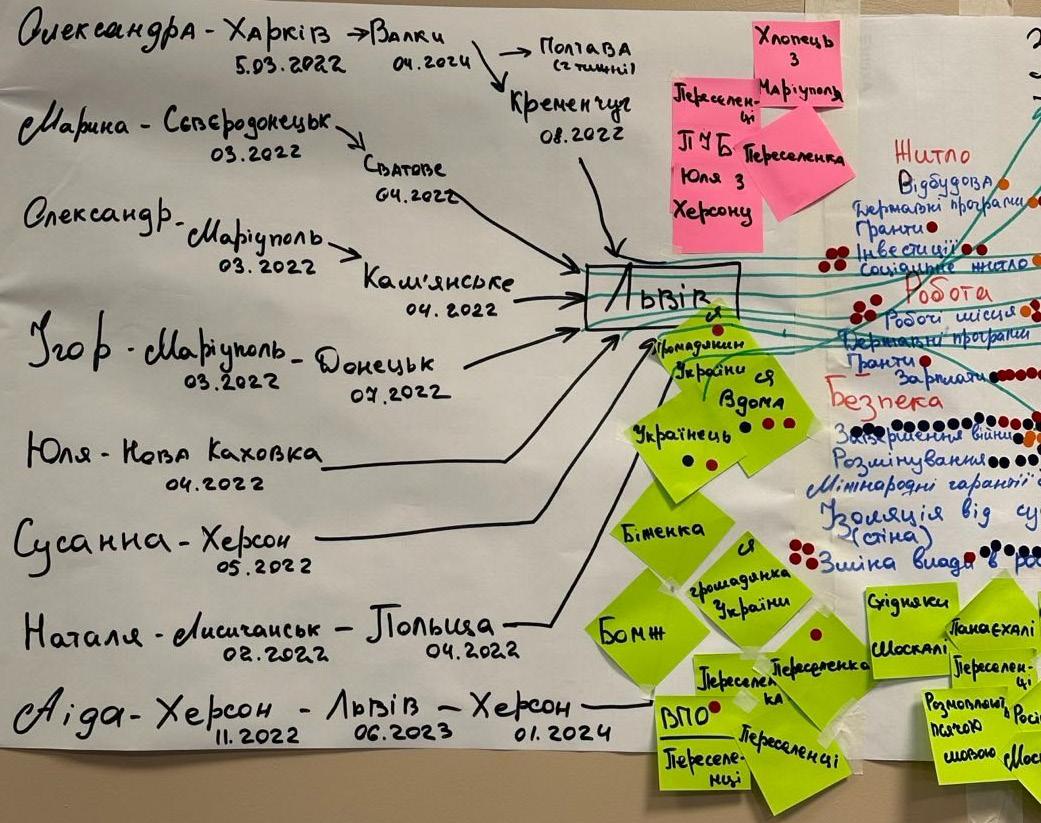 Олександра - Харків → Валки → Полтава
5.03.2022 04.2024 (2 тижні)
Кременчуг
08.2022
Марина - Сєвєродонецьк
03.2022
Сватове
04.2022
Олександр - Маріуполь
03.2022
Кам'янське
04.2022
Ігор - Маріуполь - Донецьк
03.2022 07.2022
Юля - Нова Каховка
04.2022
Сусанна - Херсон
05.2022
Наталя - Лисичанськ - Польща
02.2022 04.2022
Аіда - Херсон - Львів - Херсон
11.2022 06.2023 01.2024
Львів
Хлопець
з
Маріуполя
Переселен-
ці
ПУБ
Юля з
Херсону
Переселенка
Я
громадянин
України
Я
Вдома
Українець
Біженка
Я
громадянка
України
Бомж
Переселенка
Переселен
ка
ВПО
Переселе-
нці
Переселенці
Житло
Відбудова
Державні програми
Гранти
Інвестиції
Соціальне житло
Робота
Робочі місця
Державні програми
Гранти
Зарплати
Безпека
Завершення війни
Розмінування
Мінінародні гарантії
Ізоляція від
(стіна)
Зміна влади в рос
Східняки
Москалі
Панаєхалі
Переселен-
ці
Розмовляють
псячою
мовою
Росі
Моск